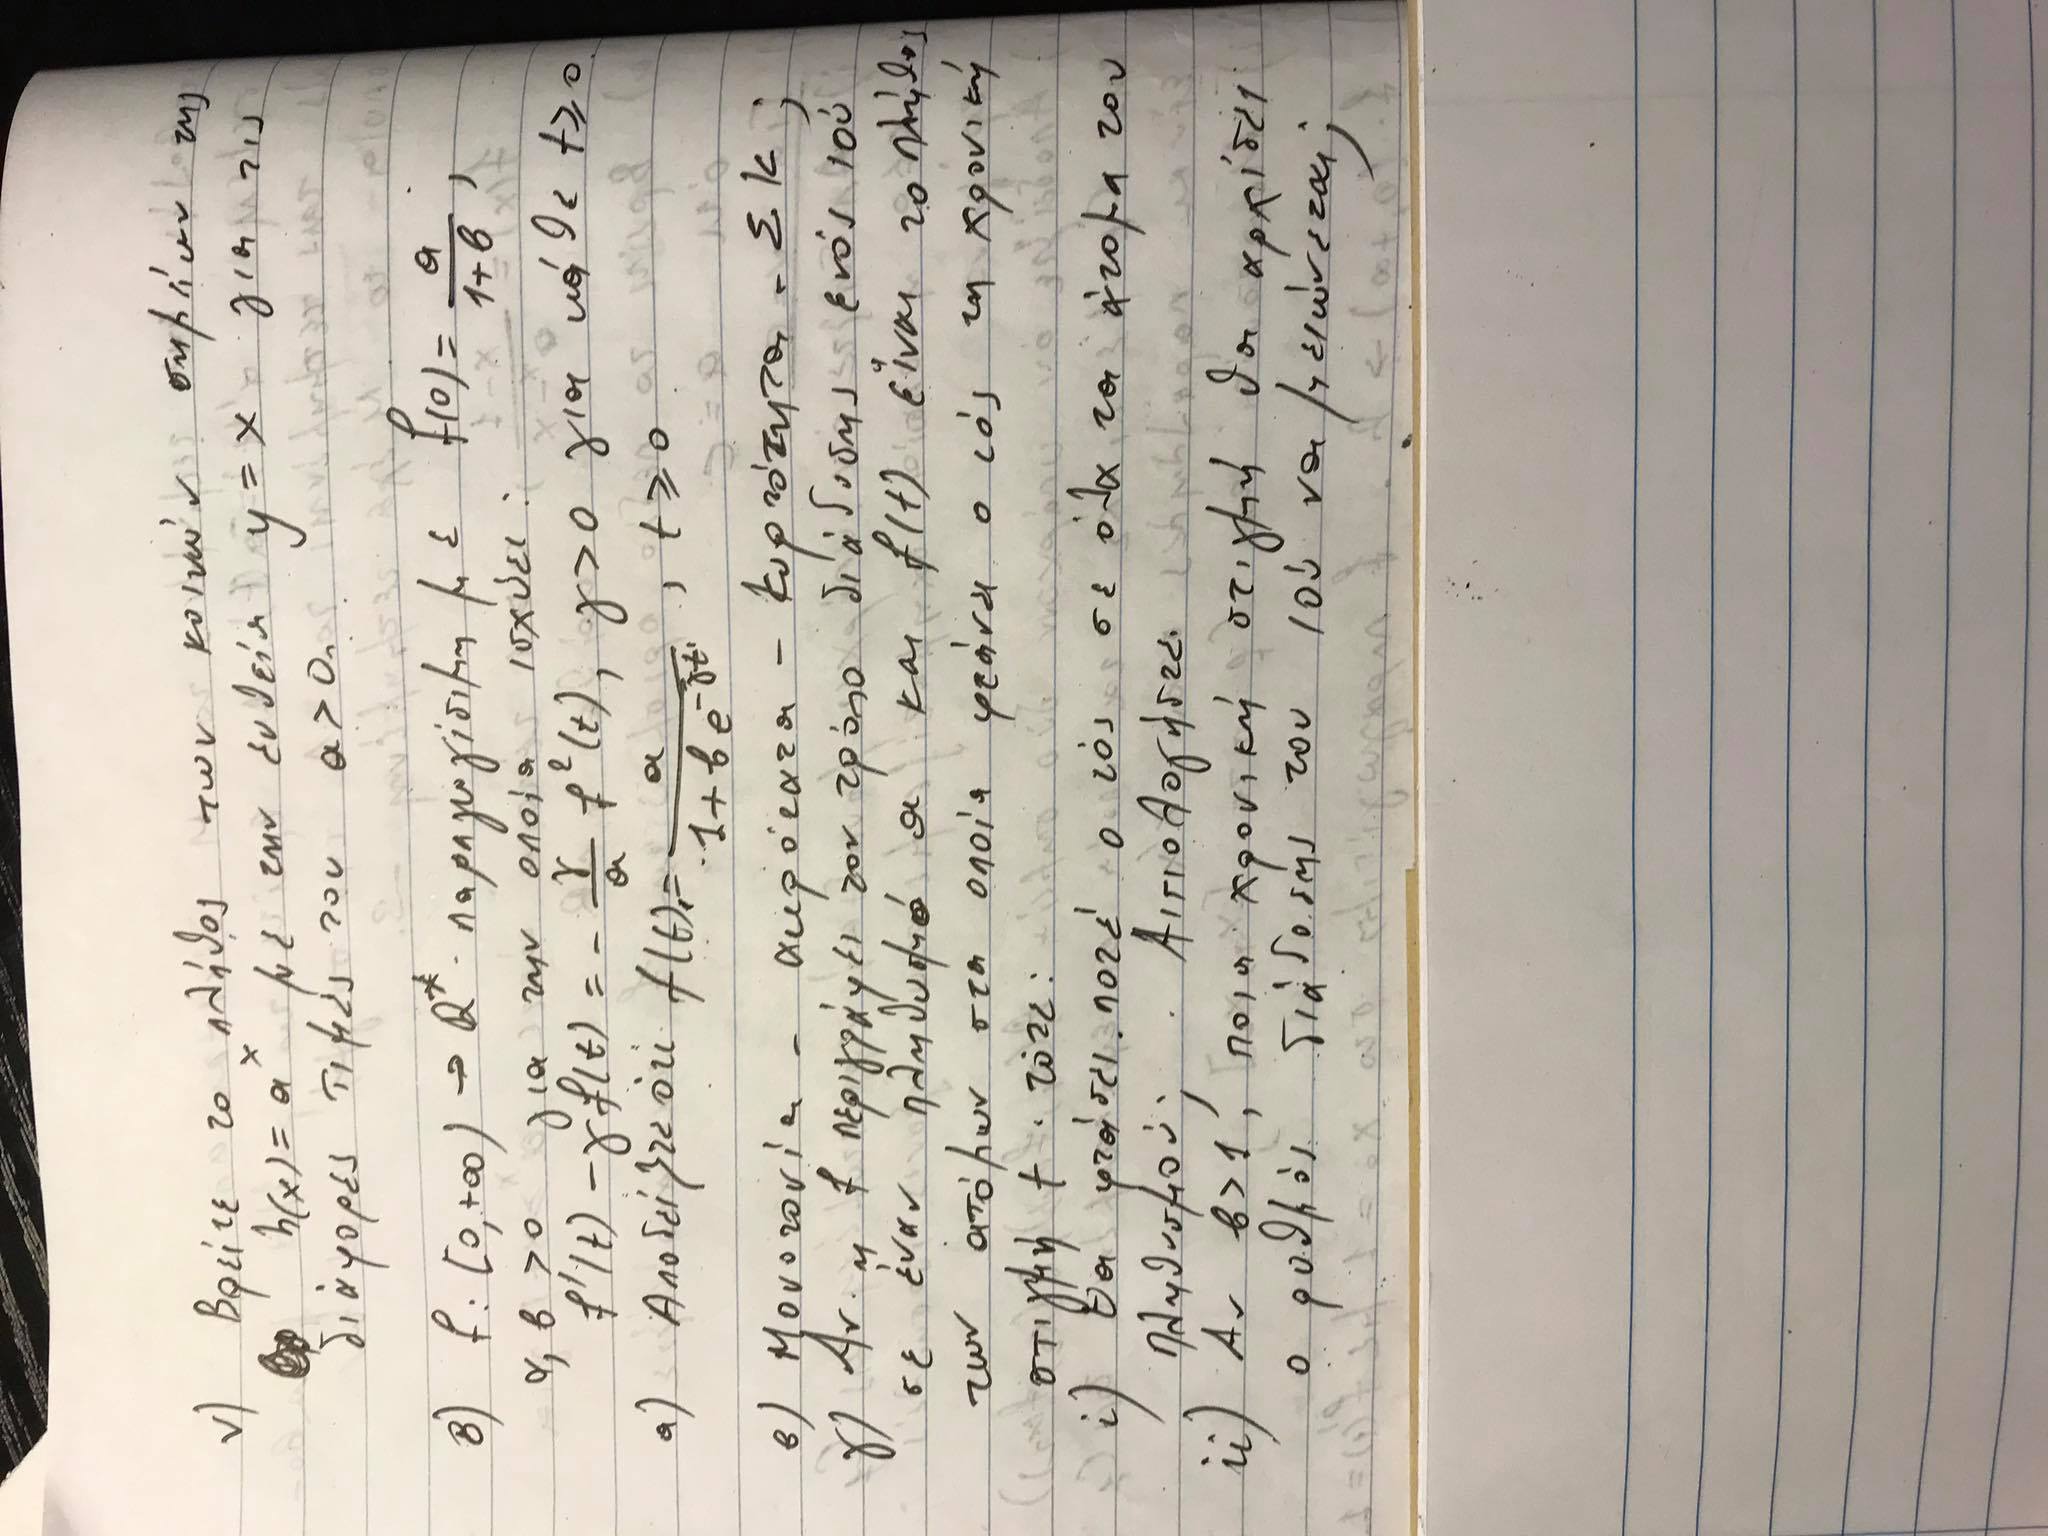 v) Βρείτε το πλήθος των κοινών σημείων της
h(x) = α^x με την ευθεία y = x για τις
διάφορες τιμές του α > 0.
8) f: [0, +∞) → R* παραγωγίσιμη με f(0) = α/(1+β),
α, β > 0 για την οποία ισχύει:
f'(t) - γf(t) = - γ/α f²(t), γ > 0 για κάθε t ≥ 0
α) Αποδείξτε ότι f(t) = α/(1+βe^(-γt)), t ≥ 0
β) Μονοτονία - ακρότατα - κυρτότητα - Σ.Κ;
γ) Αν η f περιγράφει τον τρόπο διάδοσης ενός ιού
σε έναν πληθυσμό α και f(t) είναι το πλήθος
των ατόμων στα οποία φτάνει ο ιός τη χρονική
στιγμή t τότε:
i) Θα φτάσει ποτέ ο ιός σε όλα τα άτομα του
πληθυσμού; Αιτιολογήστε.
ii) Αν β > 1, ποια χρονική στιγμή θα αρχίσει
ο ρυθμός διάδοσης του ιού να μειώνεται;